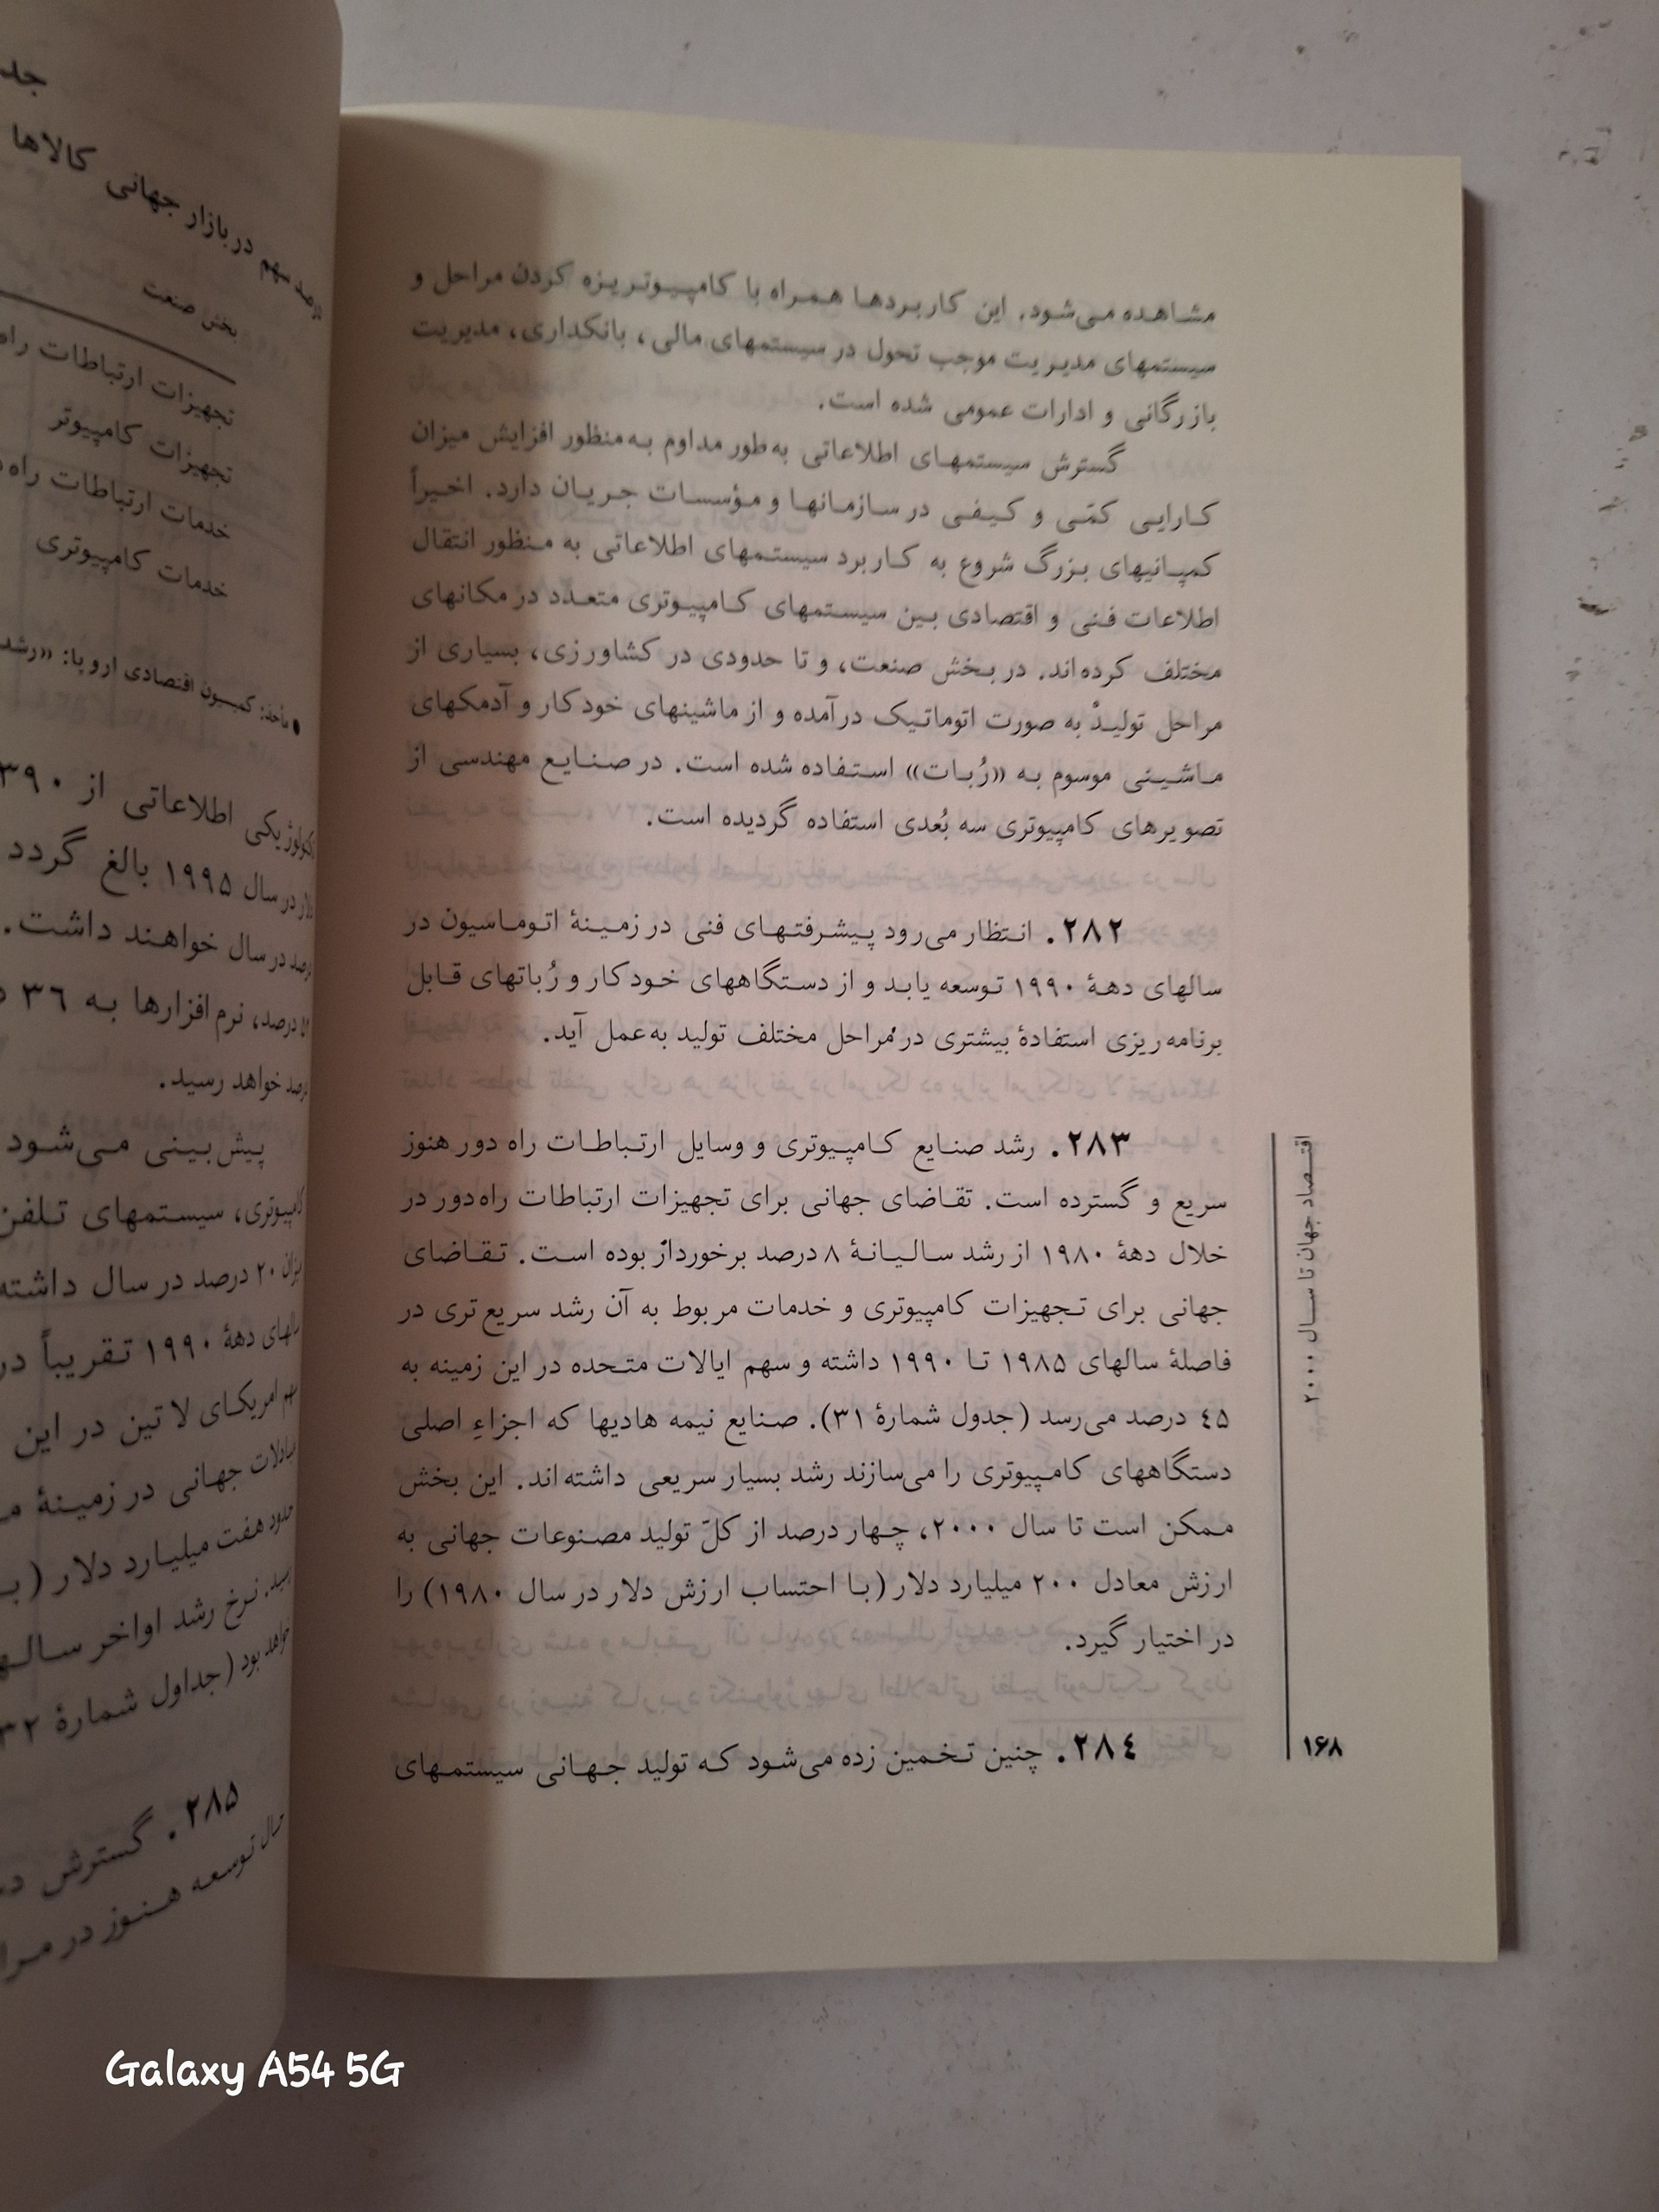 مشاهده می‌شود. این کاربردها همراه با کامپیوتریزه کردن مراحل و
سیستمهای مدیریت موجب تحول در سیستمهای مالی، بانکداری، مدیریت
بازرگانی و ادارات عمومی شده است.
گسترش سیستمهای اطلاعاتی به‌طور مداوم به‌منظور افزایش میزان
کارایی کمّی و کیفی در سازمانها و مؤسسات جریان دارد. اخیراً
کمپانیهای بزرگ شروع به کاربرد سیستمهای اطلاعاتی به منظور انتقال
اطلاعات فنی و اقتصادی بین سیستمهای کامپیوتری متعدّد در مکانهای
مختلف کرده‌اند. در بخش صنعت، و تا حدودی در کشاورزی، بسیاری از
مراحل تولیدْ به صورت اتوماتیک درآمده و از ماشینهای خودکار و آدمکهای
ماشینی موسوم به «رُبات» استفاده شده است. در صنایع مهندسی از
تصویرهای کامپیوتری سه بُعدی استفاده گردیده است.
۲۸۲. انتظار می‌رود پیشرفتهای فنی در زمینهٔ اتوماسیون در
سالهای دههٔ ۱۹۹۰ توسعه یابد و از دستگاههای خودکار و رُباتهای قابل
برنامه‌ریزی استفادهٔ بیشتری در مراحل مختلف تولید به‌عمل آید.
۲۸۳. رشد صنایع کامپیوتری و وسایل ارتباطات راه دور هنوز
سریع و گسترده است. تقاضای جهانی برای تجهیزات ارتباطات راه‌دور در
خلال دههٔ ۱۹۸۰ از رشد سالیانهٔ ۸ درصد برخوردار بوده است. تقاضای
جهانی برای تجهیزات کامپیوتری و خدمات مربوط به آن رشد سریع‌تری در
فاصلهٔ سالهای ۱۹۸۵ تا ۱۹۹۰ داشته و سهم ایالات متحده در این زمینه به
٤۵ درصد می‌رسد (جدول شمارهٔ ۳۱). صنایع نیمه هادیها که اجزاءِ اصلی
دستگاههای کامپیوتری را می‌سازند رشد بسیار سریعی داشته‌اند. این بخش
ممکن است تا سال ۲۰۰۰، چهار درصد از کلّ تولید مصنوعات جهانی به
ارزش معادل ۲۰۰ میلیارد دلار (با احتساب ارزش دلار در سال ۱۹۸۰) را
در اختیار گیرد.
۲۸٤. چنین تخمین زده می‌شود که تولید جهانی سیستمهای
اقتصاد جهان تا سال ۲۰۰۰
۱۶۸
کالاها
درصد سهم در بازار جهانی
بخش صنعت
تجهیزات ارتباطات
تجهیزات کامپیوتر
خدمات ارتباطات
خدمات کامپیوتری
● مأخذ: کمیسیون اقتصادی اروپا: «رشد
اطلاعاتی از
در سال ۱۹۹۵ بالغ گردد
درصد در سال خواهند داشت.
درصد، نرم افزارها به ۳٦
درصد خواهد رسید.
پیش‌بینی می‌شود
کامپیوتری، سیستمهای
۲۰ درصد در سال داشته
دههٔ ۱۹۹۰ تقریباً
امریکای لاتین در این
جهانی در زمینهٔ
حدود هفت میلیارد دلار
نرخ رشد اواخر
خواهد بود (جداول شمارهٔ
۲۸۵. گسترش
توسعه هنوز در
Galaxy A54 5G